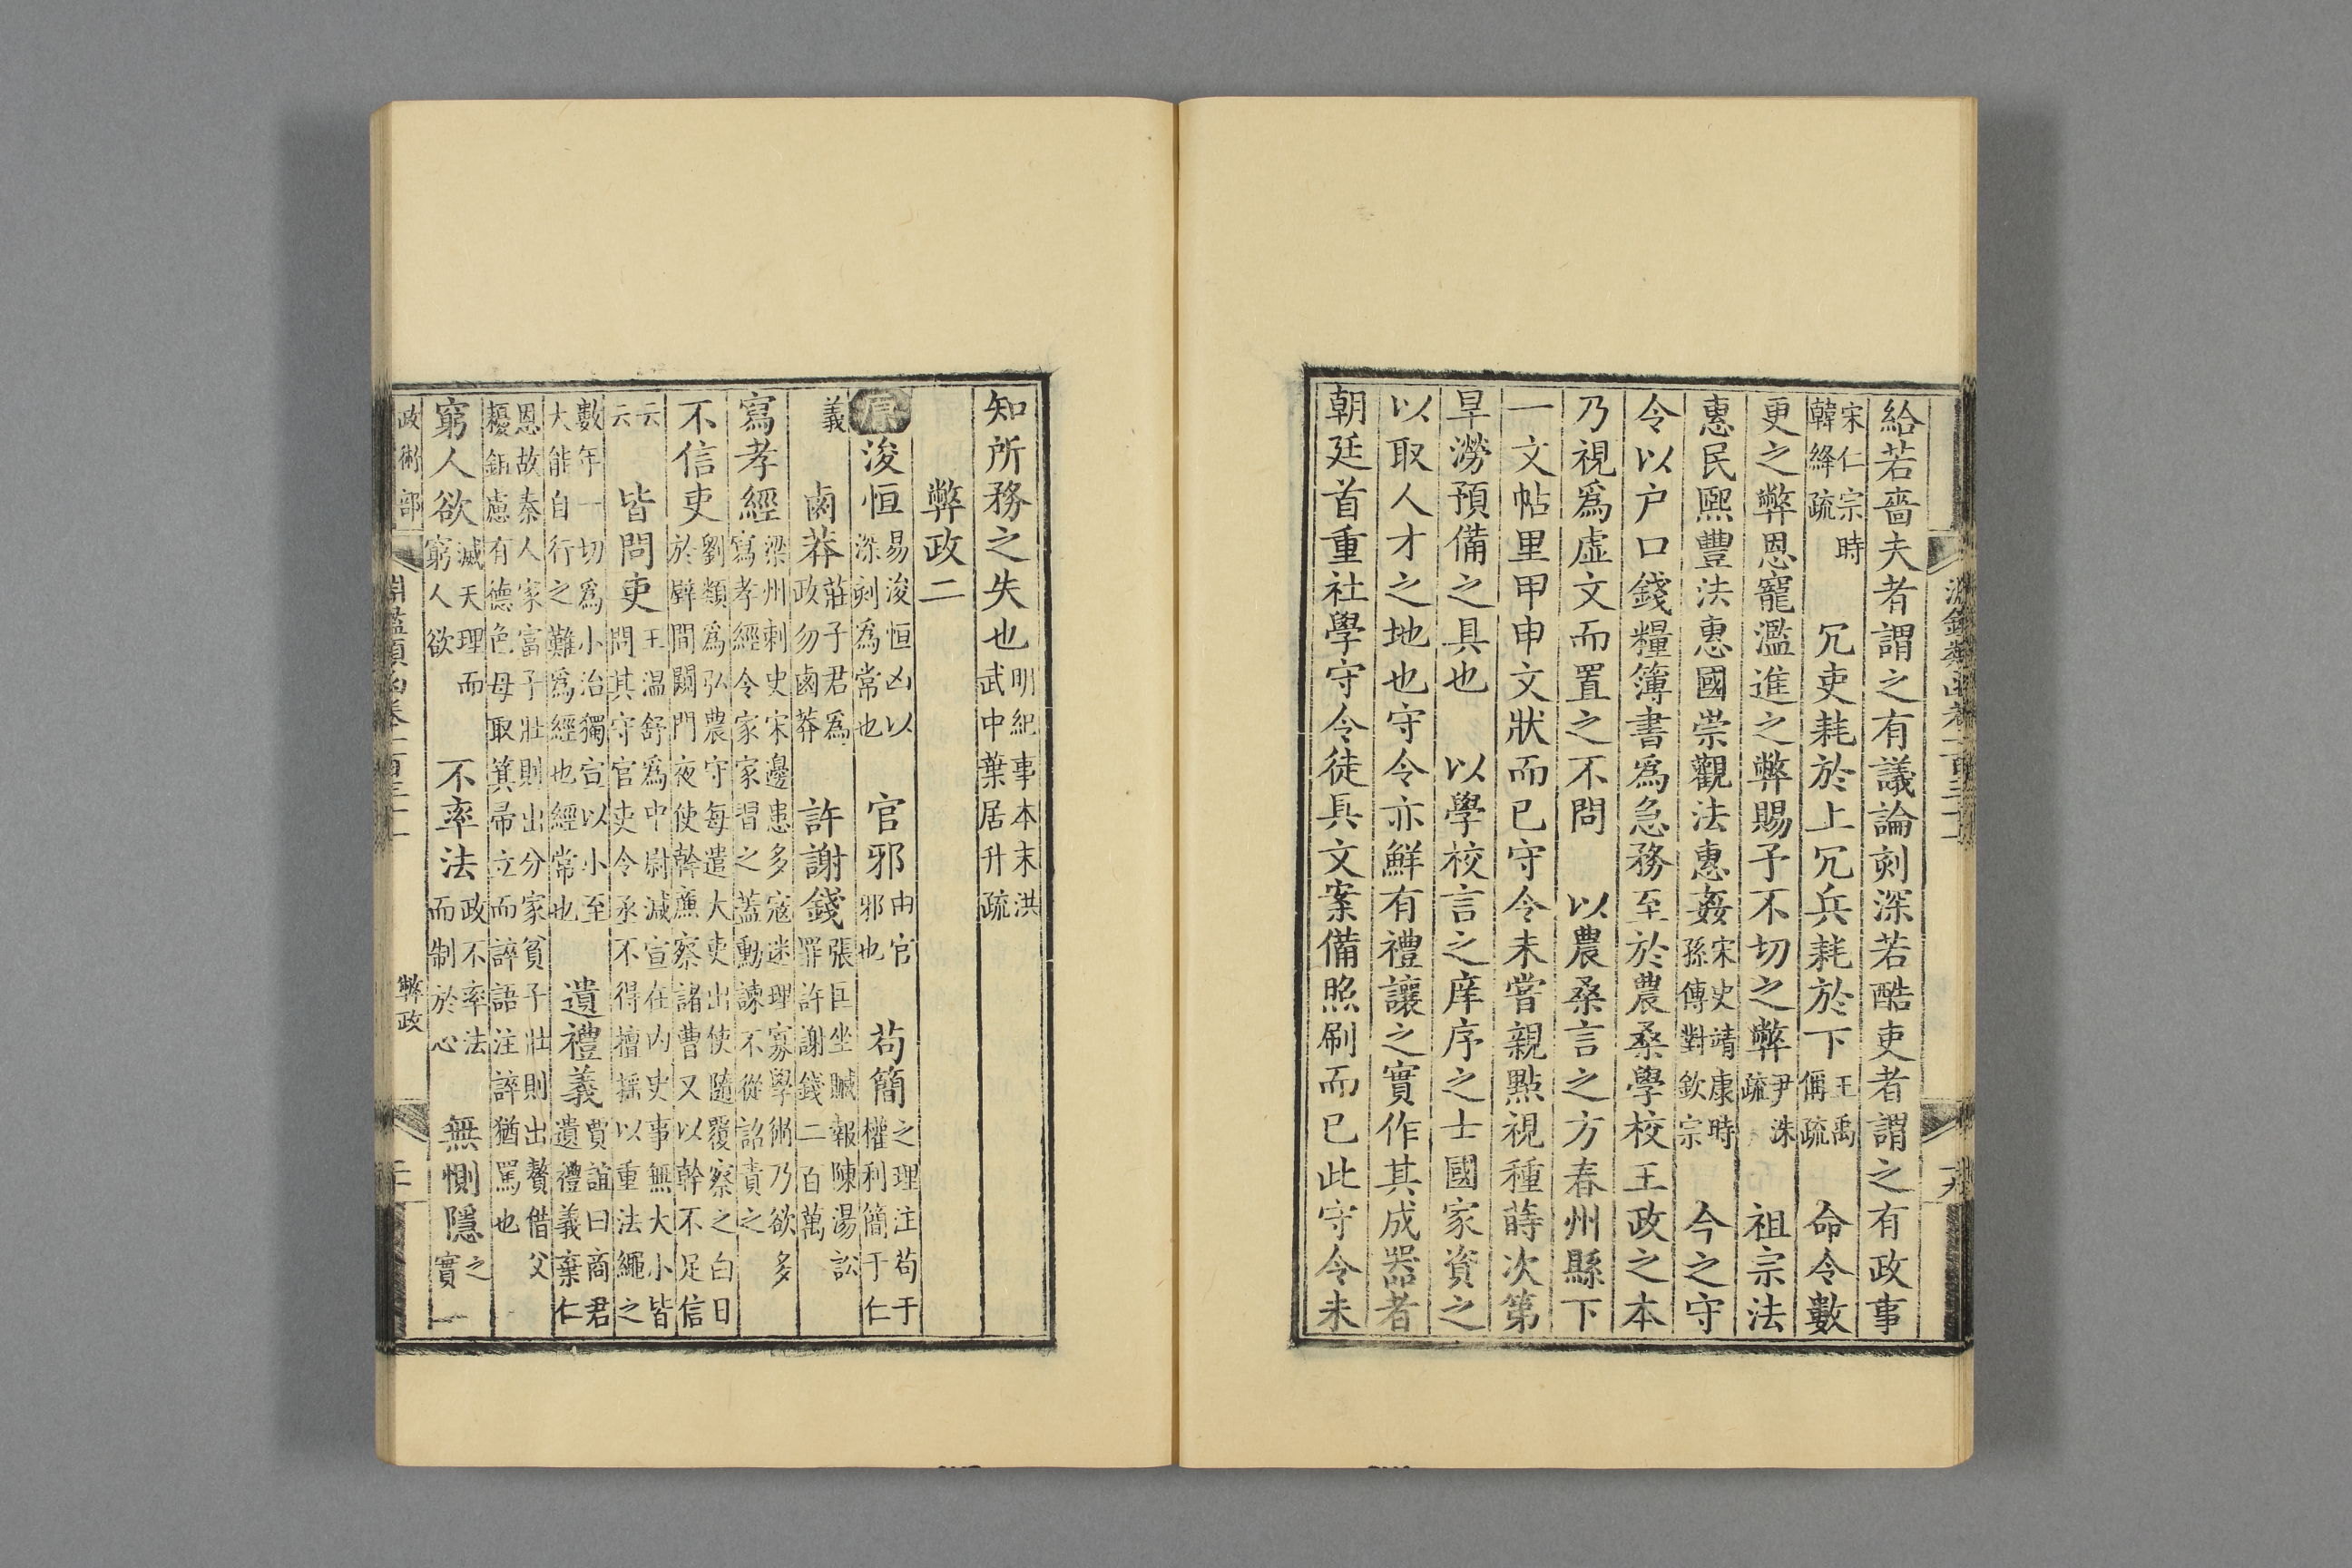 給若嗇夫者謂之有議論刻深若酷吏者謂之有政事
宋仁宗時韓絳疏　冗吏耗於上冗兵耗於下王禹偁疏　命令數
更之弊恩寵濫進之弊賜予不切之弊尹洙疏　祖宗法
惠民熙豐法惠國崇觀法惠姦宋史靖康時孫傅對欽宗　今之守
令以户口錢糧簿書爲急務至於農桑學校王政之本
乃視爲虛文而置之不問　以農桑言之方春州縣下
一文帖里甲申文狀而已守令未嘗親點視種蒔次第
旱澇預備之具也　以學校言之庠序之士國家資之
以取人才之地也守令亦鮮有禮讓之實作其成器者
朝廷首重社學守令徒具文案備照刷而已此守令未
知所務之失也明紀事本末洪武中葉居升疏
弊政二
浚恒易浚恒凶以深刻爲常也　官邪由官邪也　苟簡之理注苟于權利簡于仁
義　鹵莽莊子君爲政勿鹵莽　許謝錢張匡坐贓報陳湯訟罪許謝錢二百萬
寫孝經梁州刺史宋邊患多寇迷理寡學術乃欲多寫孝經令家家習之蓋勳諫不從詔責之
不信吏劉類爲弘農守每遣大吏出使隨覆察之白日於辟間闚門夜使幹廉察諸曹又以幹不足信
云云　皆問吏王温舒爲中尉減宣在内史事無大小皆問其守官吏令丞不得擅搖以重法繩之
數年一切爲小治獨宣以小至大能自行之難爲經也經常也　遺禮義賈誼曰商君遺禮義棄仁
恩故秦人家富子壯則出分家貧子壯則出贅借父耰鉏慮有德色母取箕帚立而誶語注誶猶罵也
窮人欲滅天理而窮人欲　不率法政不率法而制於心　無惻隱之實一
政術部　淵鑑類函卷　弊政